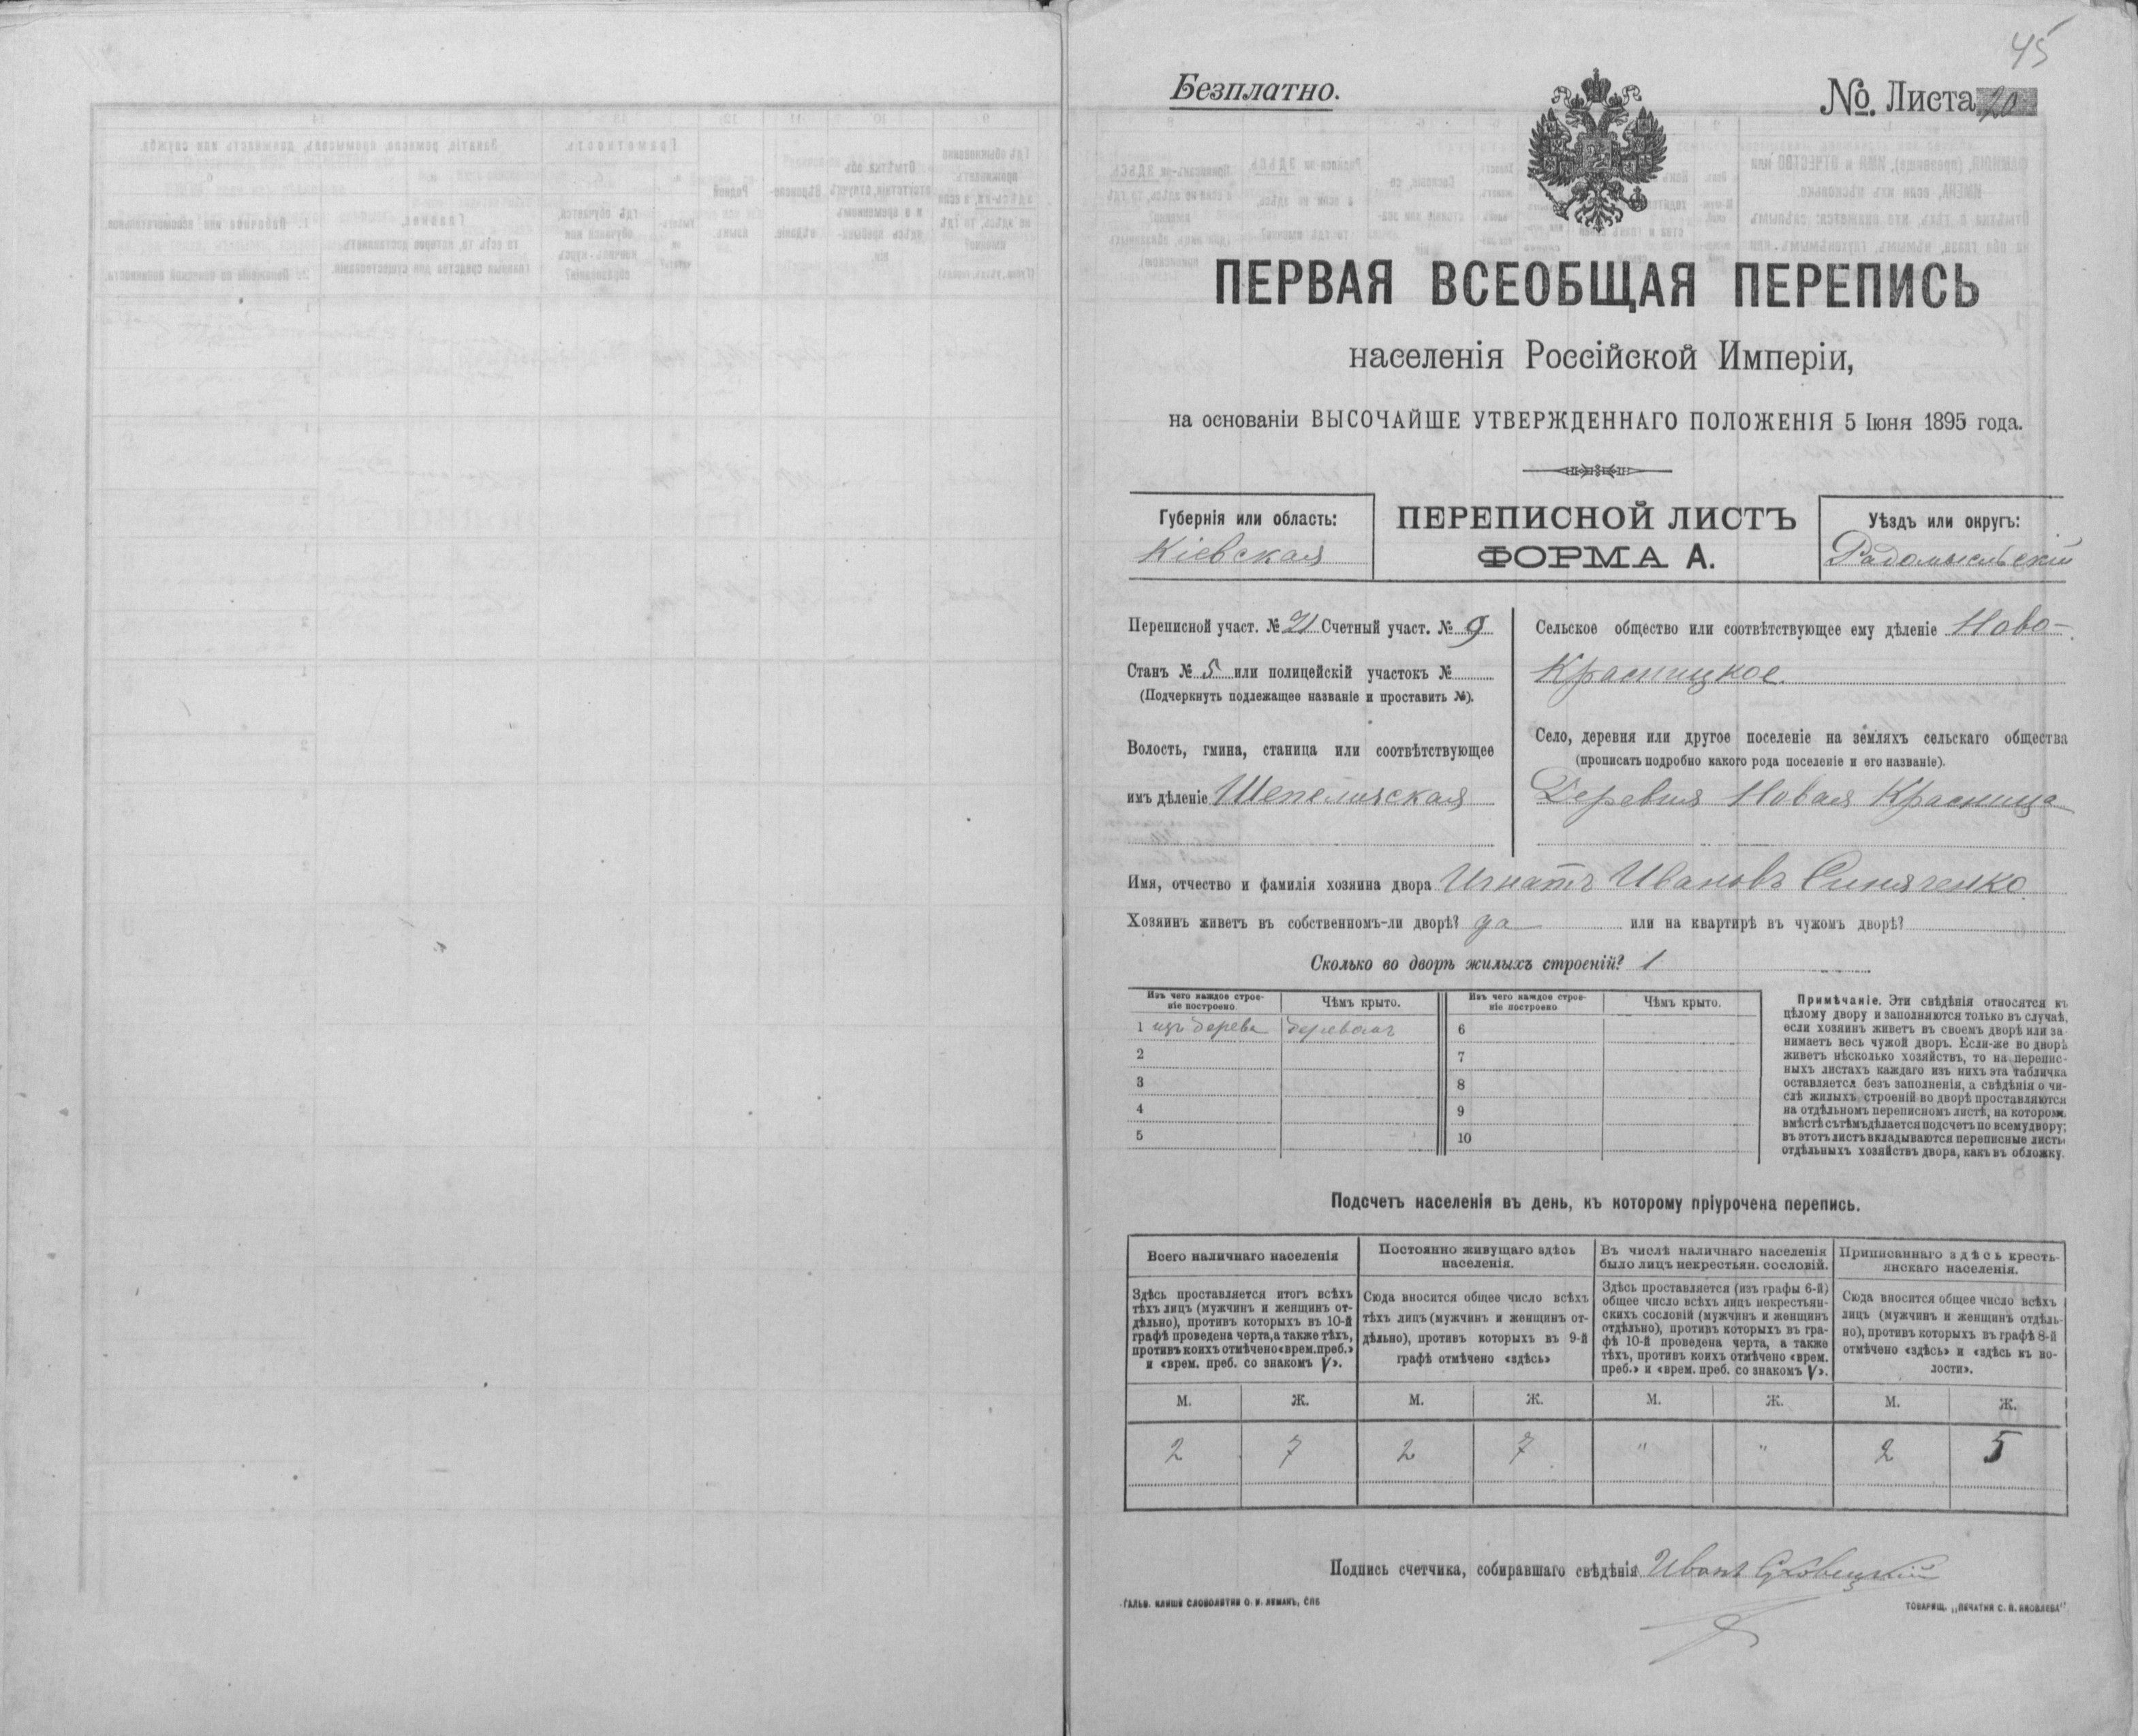 45
Безплатно.
№. Листа 20
ПЕРВАЯ ВСЕОБЩАЯ ПЕРЕПИСЬ
населенія Россійской Имперіи,
на основаніи ВЫСОЧАЙШЕ УТВЕРЖДЕННАГО ПОЛОЖЕНІЯ 5 Іюня 1895 года.
Губернія или область:
Кіевская
ПЕРЕПИСНОЙ ЛИСТЪ
ФОРМА А.
Уѣздъ или округъ:
Радомысльскій
Переписной участ. № 21 Счетный участ. № 9
Станъ № 5 или полицейскій участокъ №
(Подчеркнуть подлежащее названіе и проставить №).
Волость, гмина, станица или соотвѣтствующее
имъ дѣленіе Шепеличская
Сельское общество или соотвѣтствующее ему дѣленіе Ново-
Красницкое.
Село, деревня или другое поселеніе на земляхъ сельскаго общества
(прописать подробно какого рода поселеніе и его названіе).
Деревня Новая Красница
Имя, отчество и фамилія хозяина двора Игнатъ Ивановъ Синяченко
Хозяинъ живетъ въ собственномъ-ли дворѣ? да или на квартирѣ въ чужомъ дворѣ?
Сколько во дворѣ жилыхъ строеній? 1
Изъ чего каждое строе-
ніе построено
Чѣмъ крыто.
Изъ чего каждое строе-
ніе построено
Чѣмъ крыто.
1 изъ дерева деревомъ
6
2
7
3
8
4
9
5
10
Примѣчаніе. Эти свѣдѣнія относятся къ
цѣлому двору и заполняются только въ случаѣ,
если хозяинъ живетъ въ своемъ дворѣ или за-
нимаетъ весь чужой дворъ. Если-же во дворѣ
живетъ нѣсколько хозяйствъ, то на перепис-
ныхъ листахъ каждаго изъ нихъ эта табличка
оставляется безъ заполненія, а свѣдѣнія о чи-
слѣ жилыхъ строеній во дворѣ проставляются
на отдѣльномъ переписномъ листѣ, на которомъ
вмѣстѣ съ тѣмъ дѣлается подсчетъ по всему двору;
въ этотъ листъ вкладываются переписные листы
отдѣльныхъ хозяйствъ двора, какъ въ обложку.
Подсчетъ населенія въ день, къ которому пріурочена перепись.
Всего наличнаго населенія
Здѣсь проставляется итогъ всѣхъ
тѣхъ лицъ (мужчинъ и женщинъ от-
дѣльно), противъ которыхъ въ 10-й
графѣ проведена черта, а также тѣхъ,
противъ коихъ отмѣчено «врем. преб.»
и «врем. преб. со знакомъ V».
Постоянно живущаго здѣсь
населенія.
Сюда вносится общее число всѣхъ
тѣхъ лицъ (мужчинъ и женщинъ от-
дѣльно), противъ которыхъ въ 9-й
графѣ отмѣчено «здѣсь»
Въ числѣ наличнаго населенія
было лицъ некрестьян. сословій.
Здѣсь проставляется (изъ графы 6-й)
общее число всѣхъ лицъ некрестьян-
скихъ сословій (мужчинъ и женщинъ
отдѣльно), противъ которыхъ въ гра-
фѣ 10-й проведена черта, а также
тѣхъ, противъ коихъ отмѣчено «врем.
преб.» и «врем. преб. со знакомъ V».
Приписаннаго здѣсь кресть-
янскаго населенія.
Сюда вносится общее число всѣхъ
лицъ (мужчинъ и женщинъ отдѣль-
но), противъ которыхъ въ графѣ 8-й
отмѣчено «здѣсь» и «здѣсь къ во-
лости».
М. Ж. М. Ж. М. Ж. М. Ж.
2 7 2 7 " " 2 5
Подпись счетчика, собиравшаго свѣдѣнія Иванъ
ГАЛЬВ. КЛИШЕ СЛОВОЛИТНИ О. И. ЛЕМАНЪ, СПБ
ТОВАРИЩ. „ПЕЧАТНЯ С. П. ЯКОВЛЕВА"